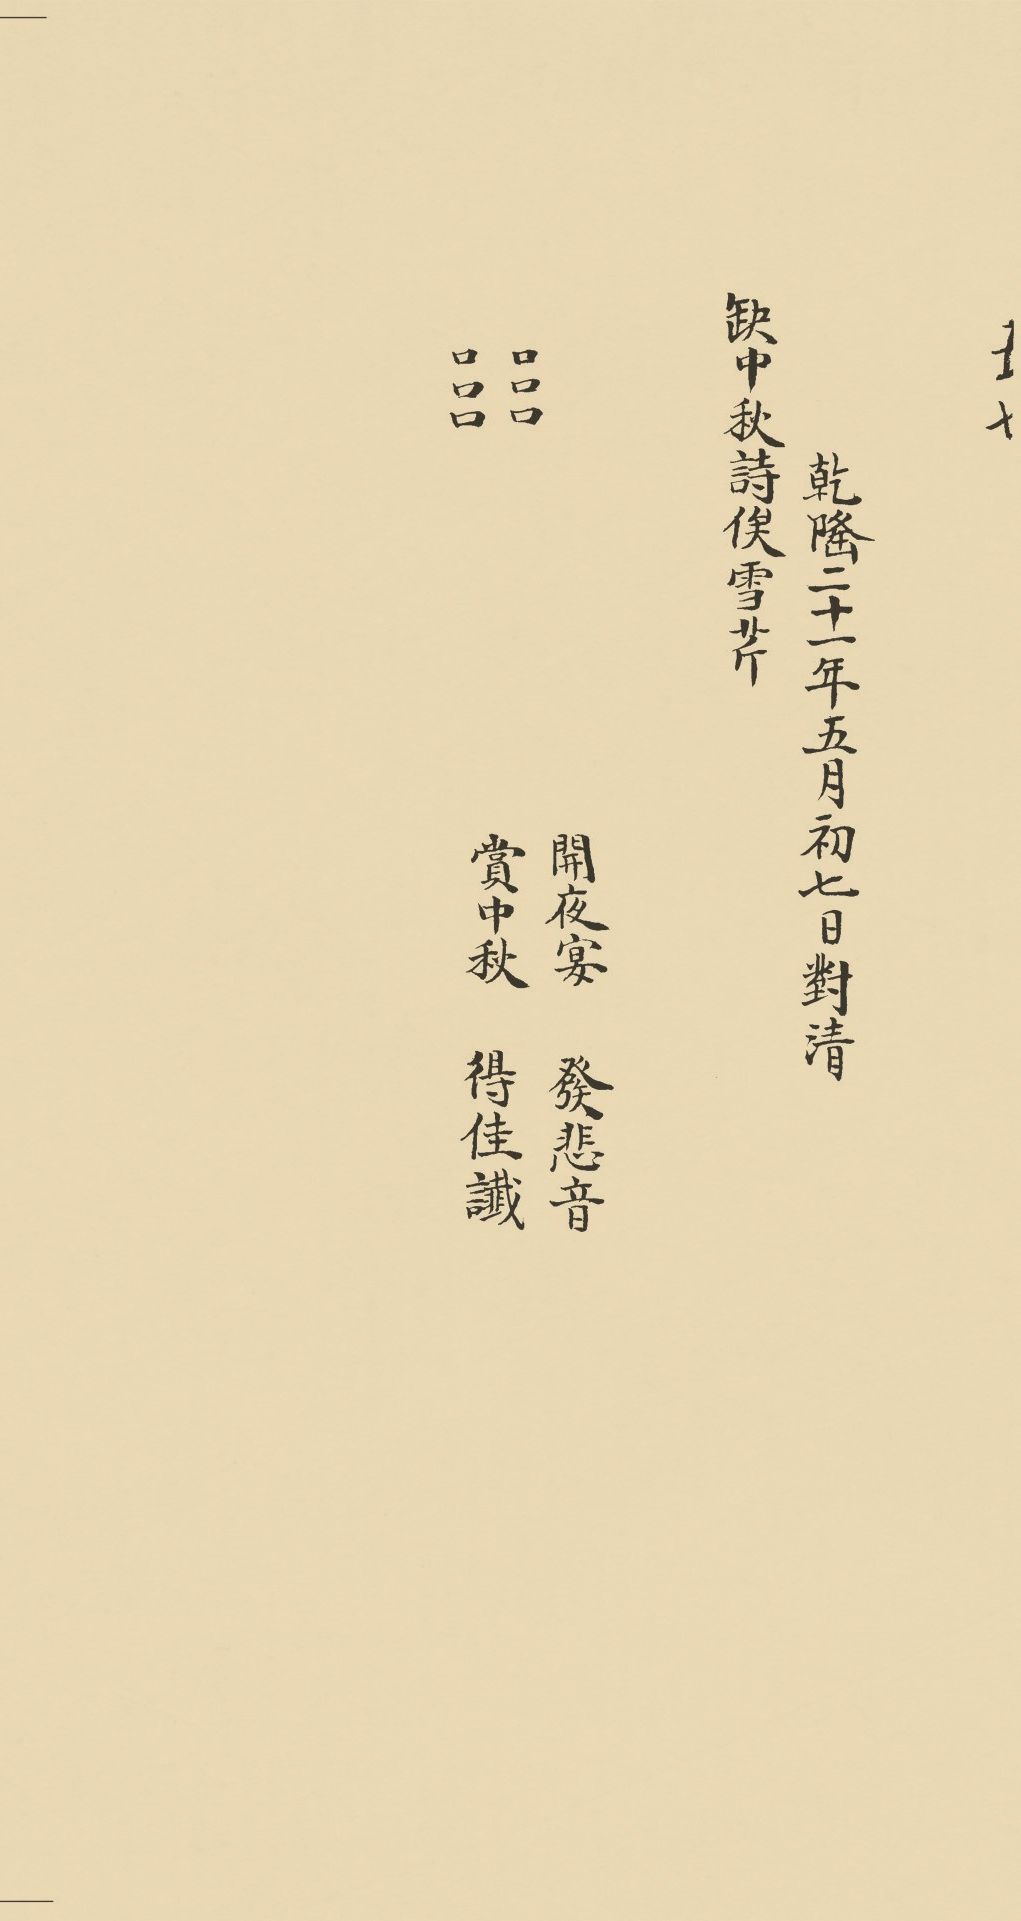 乾隆二十一年五月初七日對清
缺中秋詩俟雪芹
□□□　開夜宴　發悲音
□□□　賞中秋　得佳讖